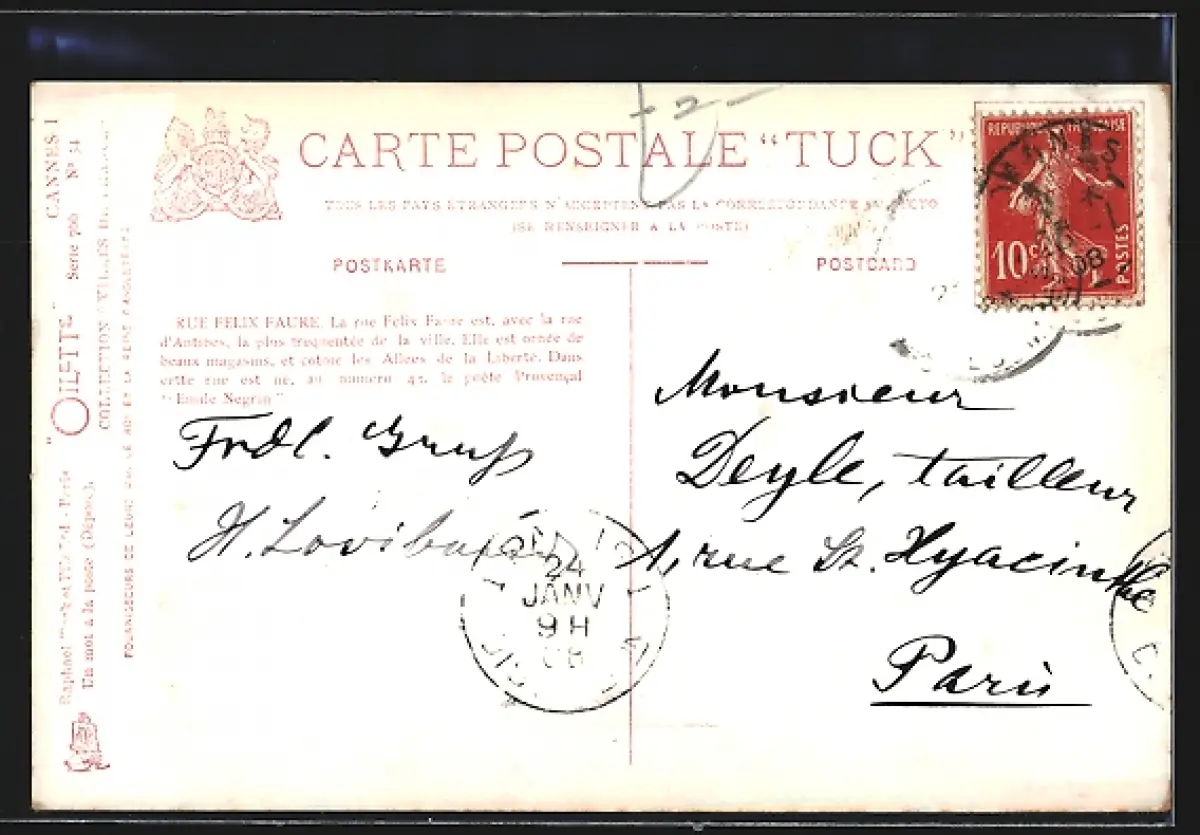 CARTE POSTALE "TUCK"
TOUS LES PAYS ETRANGERS N'ACCEPTENT PAS LA CORRESPONDANCE AU RECTO
(SE RENSEIGNER A LA POSTE)
POSTKARTE
POSTCARD
RUE FELIX FAURE. La rue Félix Faure est, avec la rue
d'Antibes, la plus fréquentée de la ville. Elle est ornée de
beaux magasins, et cotoie les Allées de la Liberté. Dans
cette rue est né, au numero 42, le poète Provençal
"Emile Negrin"
CANNES I
"OILETTE" Serie 760 Nº 54
COLLECTION VILLES DE
Raphael Tuck et Fils Ltd - Paris
Un mot à la poste (Déposé).
REPUBLIQUE FRANÇAISE
10 c.
POSTES
08
- 2 -
Frdl. Gruß
H.
Monsieur
Deyle, tailleur
1, rue St. Hyacinthe
Paris
24
JANV
9 H
08